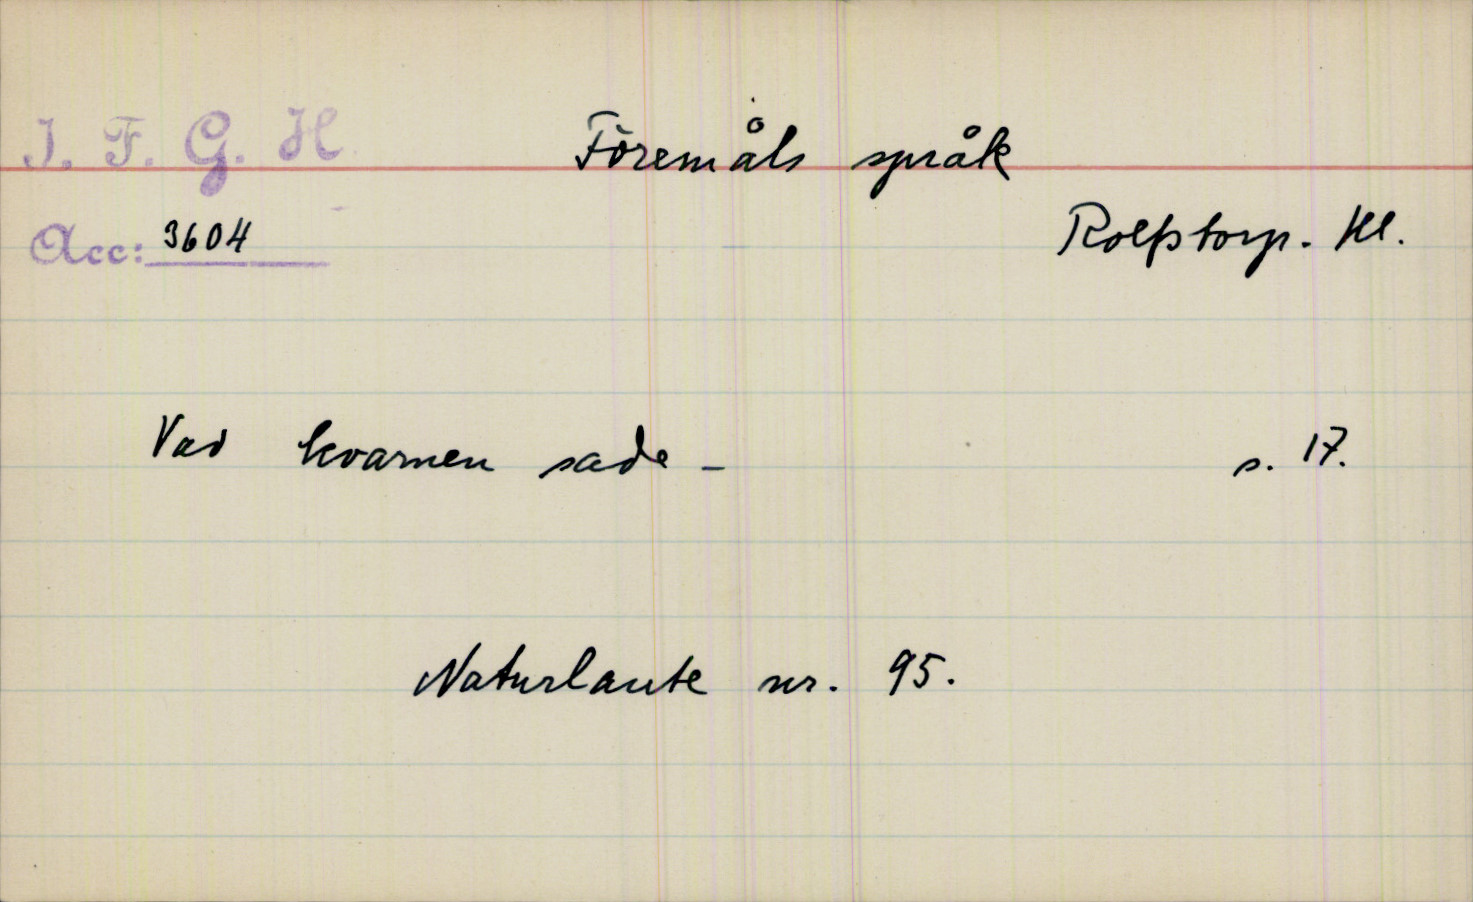 I. F. G. H.
Föremåls språk
Acc: 3604
Rolfstorp. Hl.
Vad kvarnen sade – s. 17.
Naturlaute nr. 95.